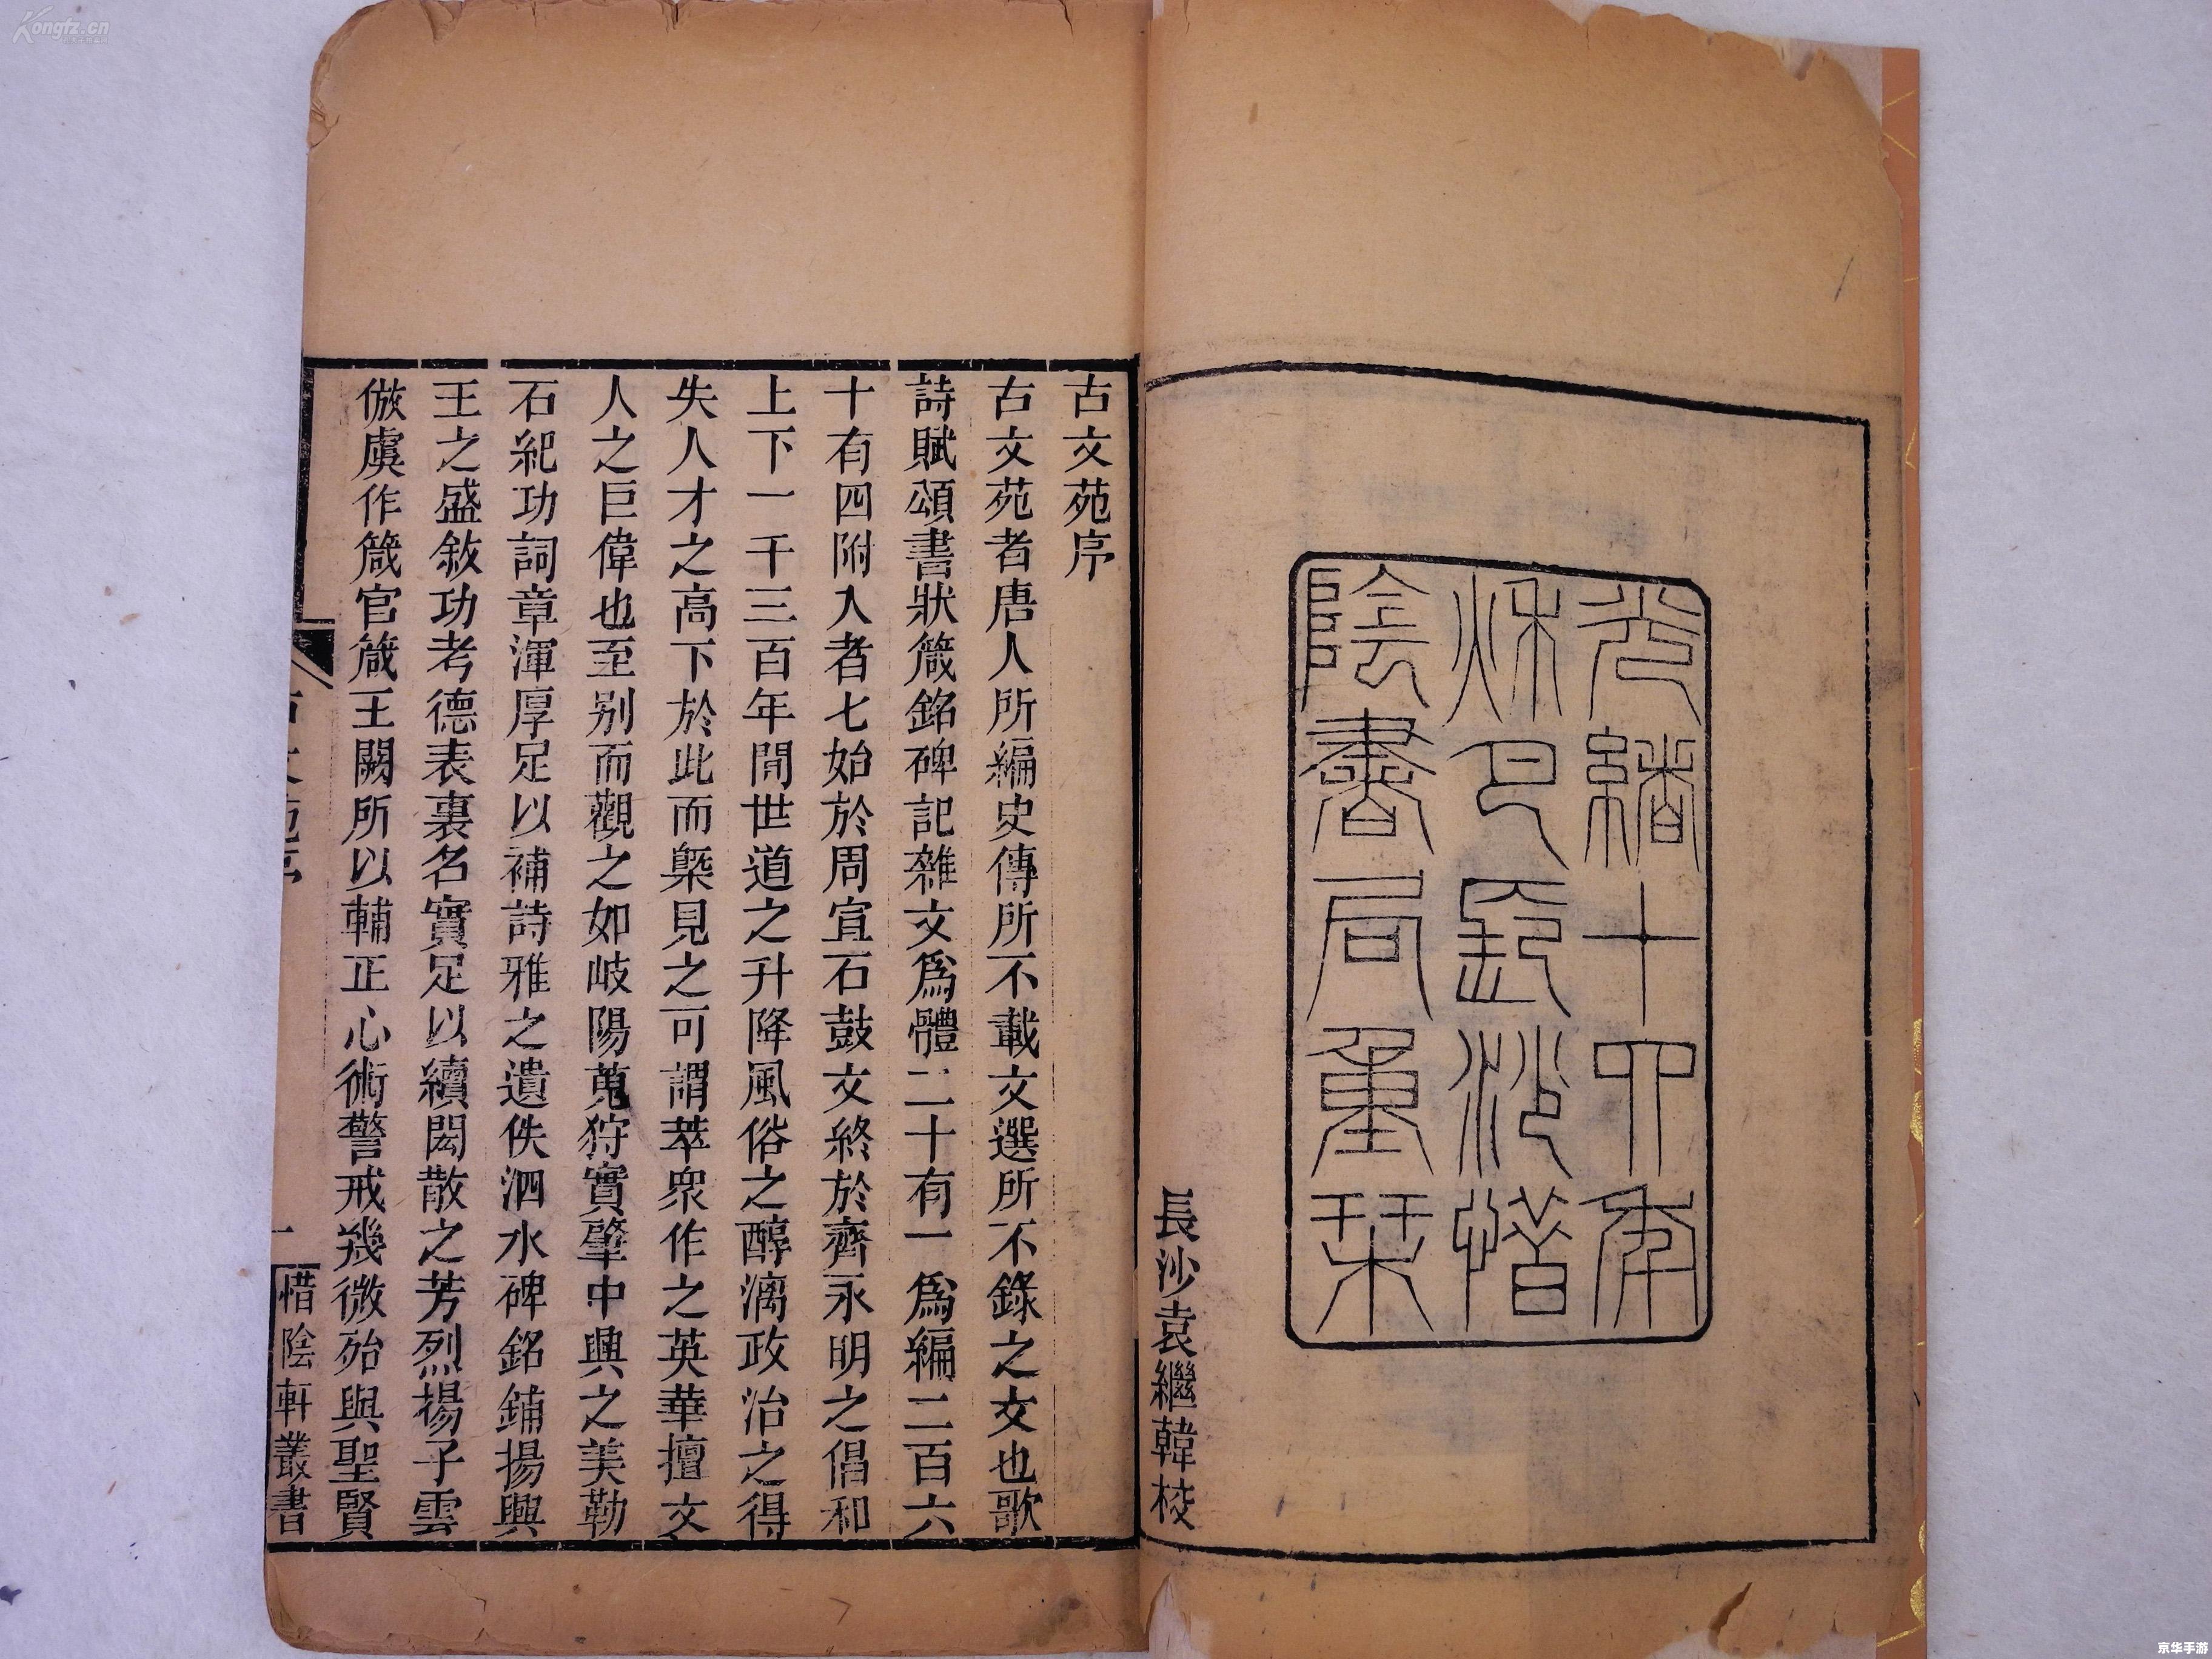 光緒十四年
秋八月長沙惜
陰書局重栞
長沙袁繼韓校
古文苑序
古文苑者唐人所編史傳所不載文選所不錄之文也歌
詩賦頌書狀箴銘碑記雜文爲體二十有一爲編二百六
十有四附入者七始於周宣石鼓文終於齊永明之倡和
上下一千三百年間世道之升降風俗之醇漓政治之得
失人才之高下於此而槩見之可謂萃衆作之英華擅文
人之巨偉也至别而觀之如岐陽蒐狩實肇中興之美勒
石紀功詞章渾厚足以補詩雅之遺佚泗水碑銘鋪揚興
王之盛敘功考德表裏名實足以續閎散之芳烈揚子雲
倣虞作箴官箴王闕所以輔正心術警戒幾微殆與聖賢
一
惜陰軒叢書
Kongfz.cn
京华手游